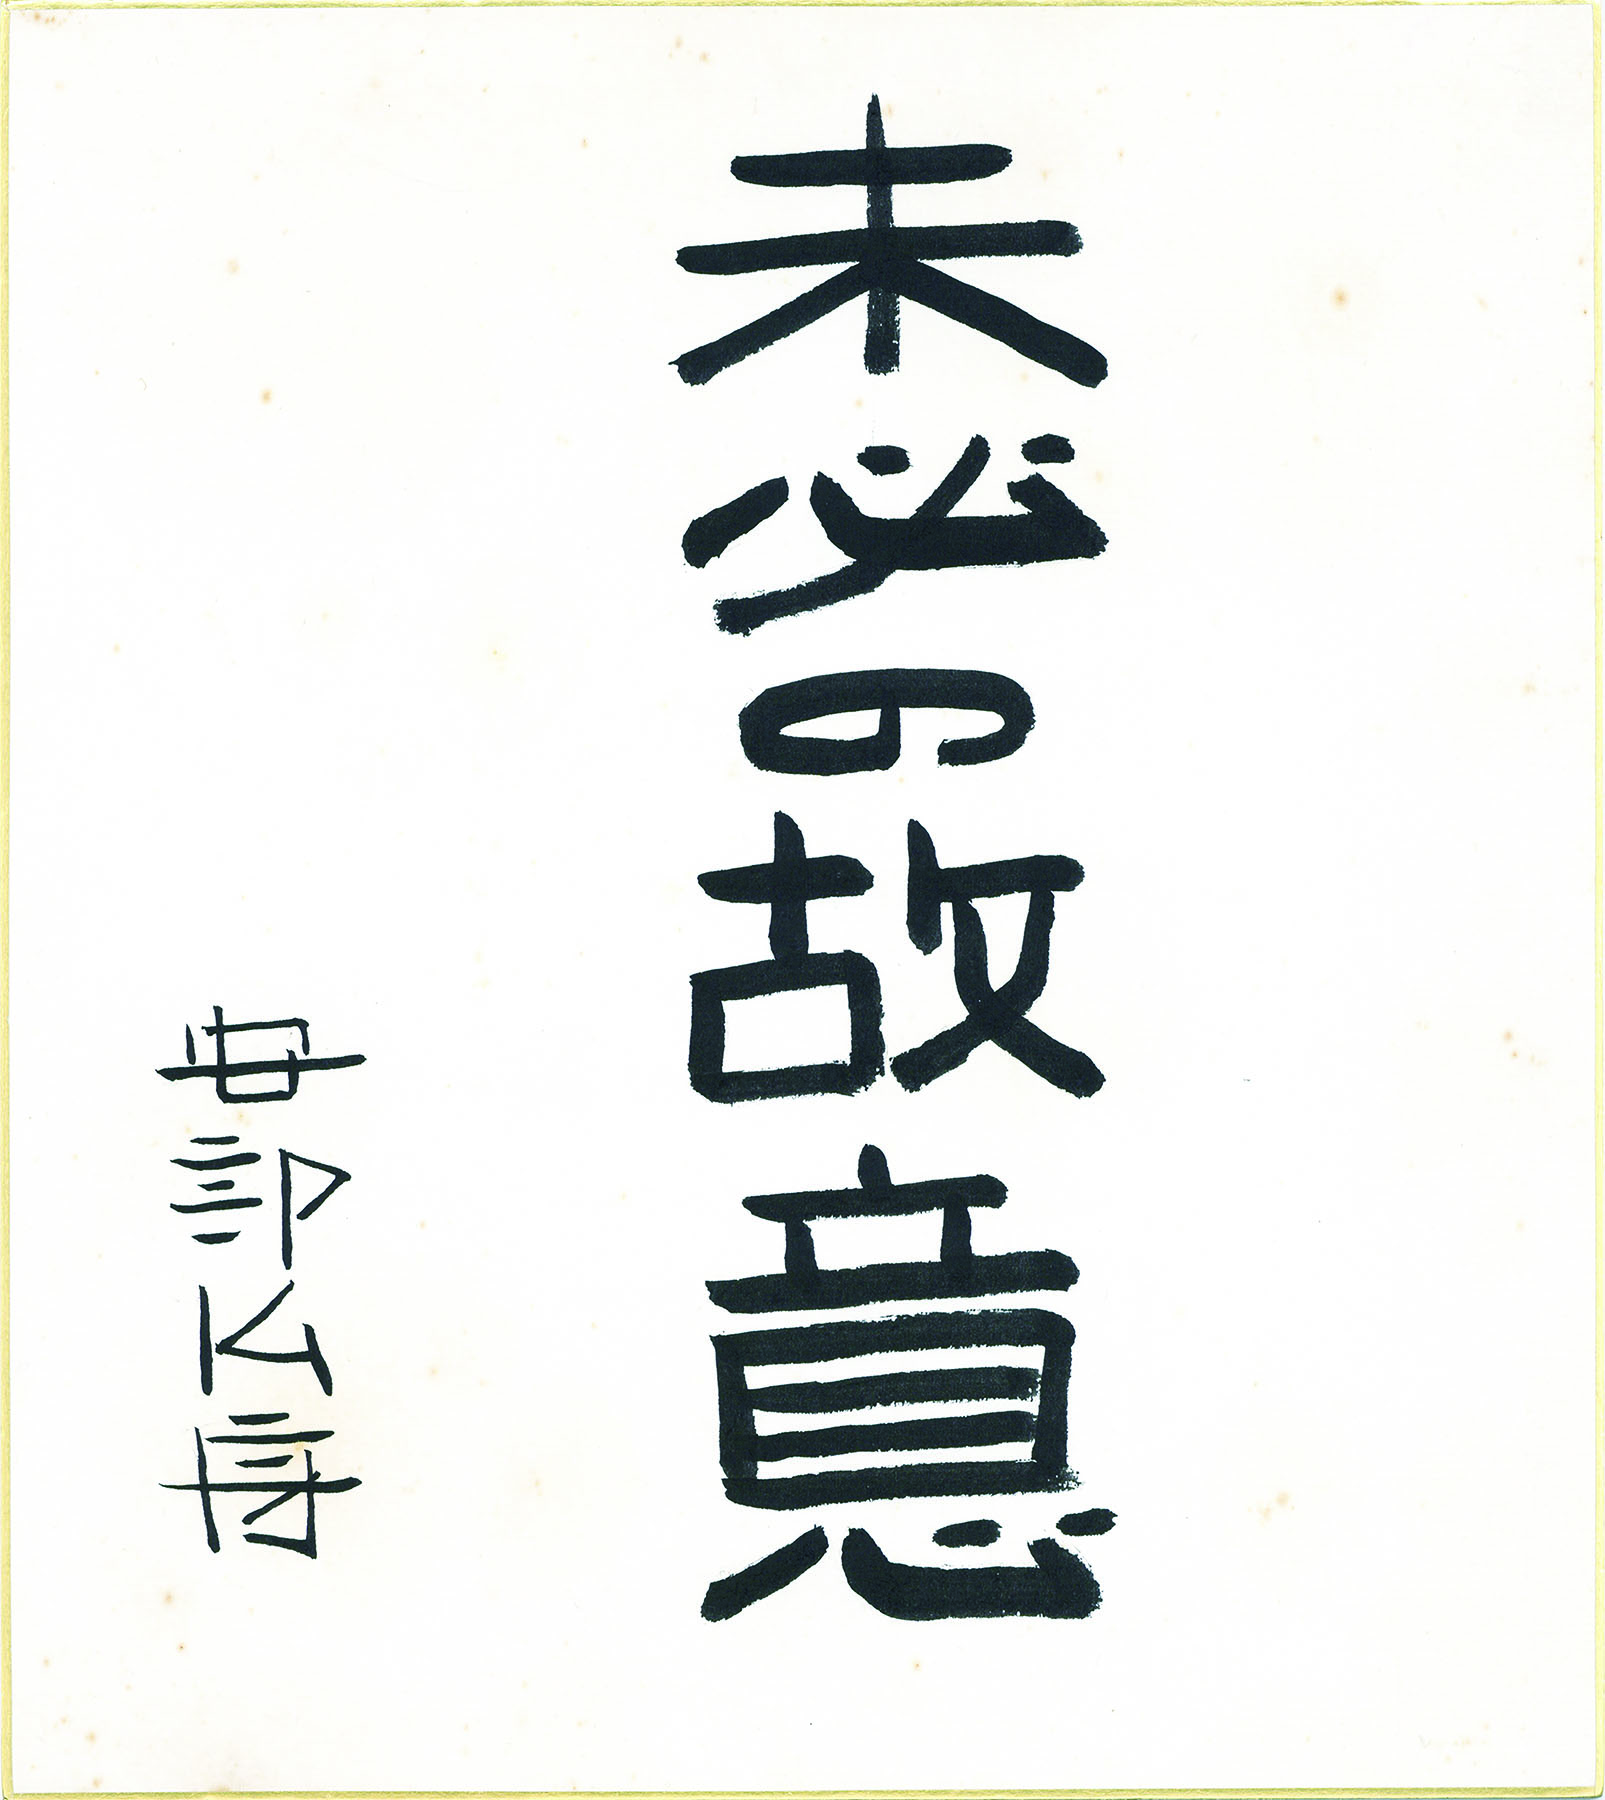 未必の故意
安部公房